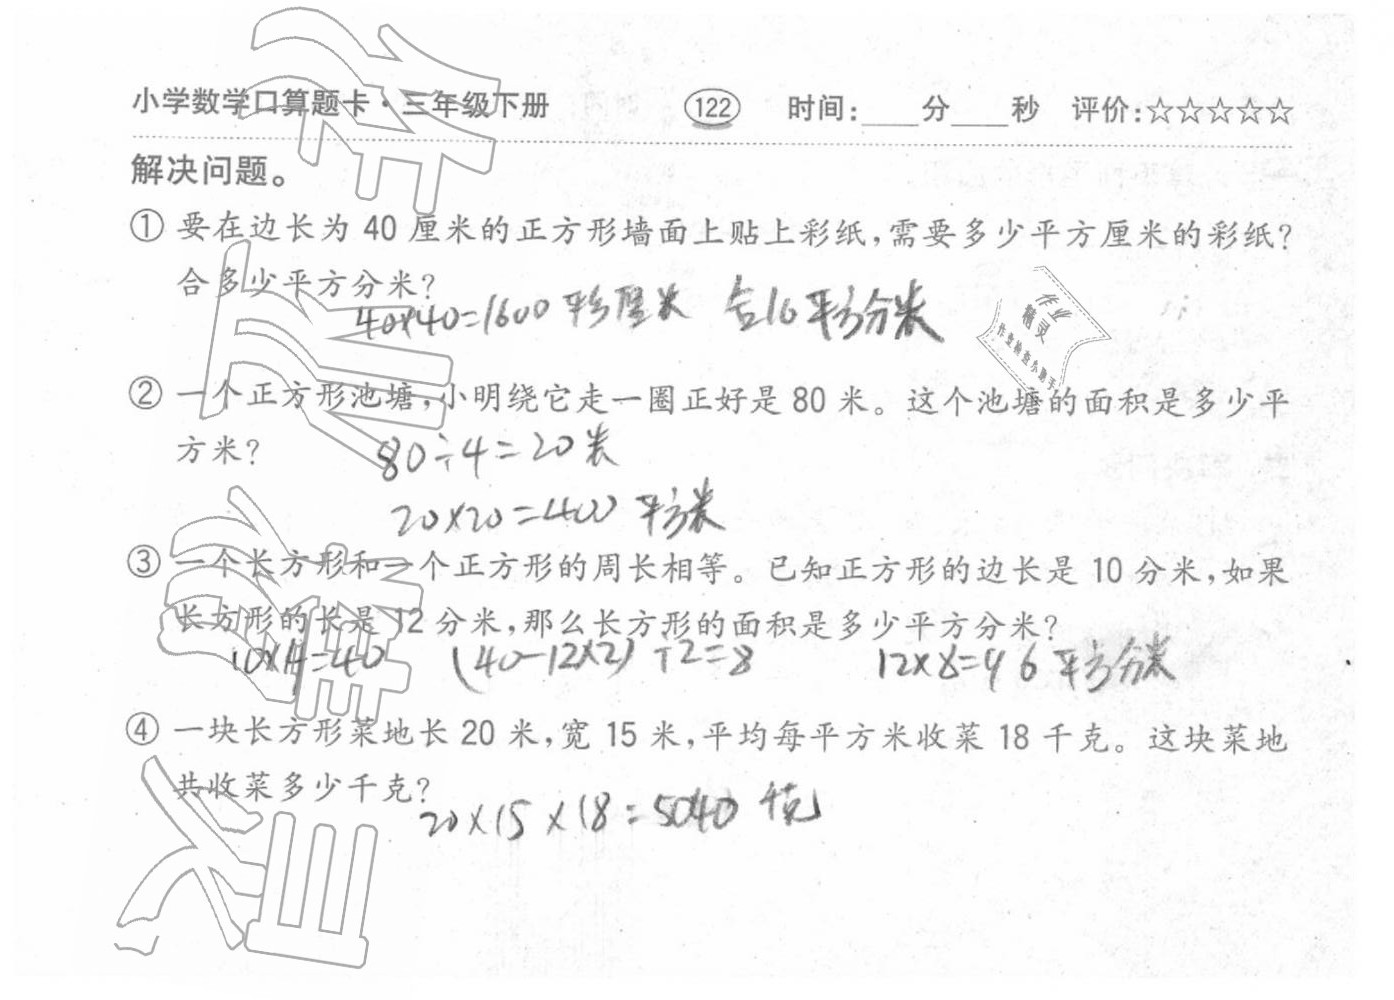 小学数学口算题卡·三年级下册 122 时间:____分____秒 评价:☆☆☆☆☆
解决问题。
① 要在边长为 40 厘米的正方形墙面上贴上彩纸,需要多少平方厘米的彩纸?
合多少平方分米?
40×40=1600 平方厘米 合16平方分米
作业
精灵
作业检查小助手
② 一个正方形池塘,小明绕它走一圈正好是 80 米。这个池塘的面积是多少平
方米?
80÷4=20米
20×20=400 平方米
③ 一个长方形和一个正方形的周长相等。已知正方形的边长是 10 分米,如果
长方形的长是 12 分米,那么长方形的面积是多少平方分米?
10×4=40 (40-12×2)÷2=8 12×8=96 平方分米
④ 一块长方形菜地长 20 米,宽 15 米,平均每平方米收菜 18 千克。这块菜地
共收菜多少千克?
20×15×18=5040 千克